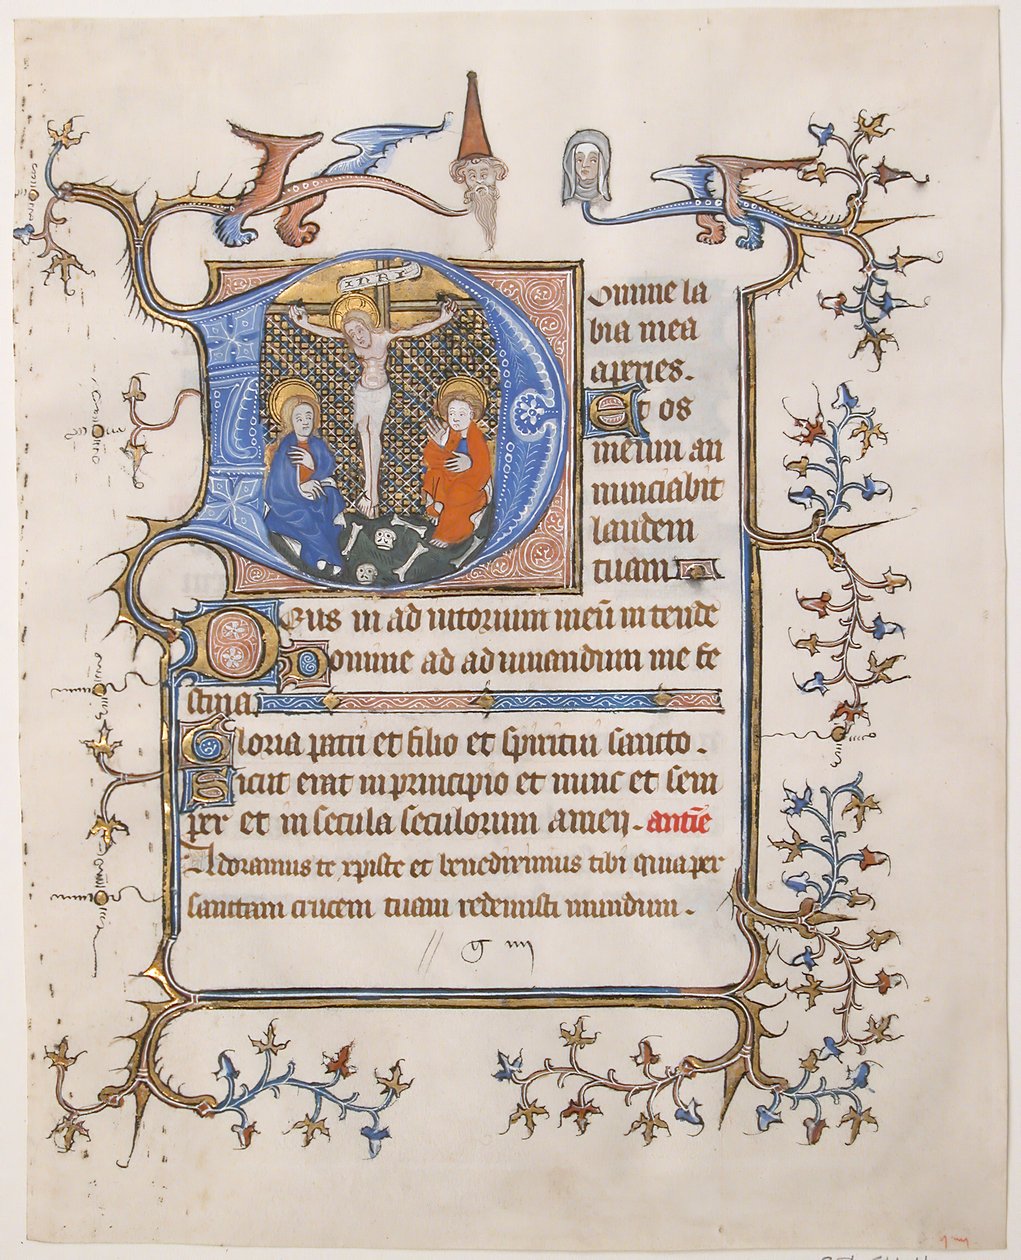 INRI
Domine la
bia mea
aperies.
Et os
meum an
nunciabit
laudem
tuam
Deus in ad iutorium meū in tende
Domine ad ad iuuandum me fe
stina
Gloria patri et filio et spiritui sancto.
Sicut erat in principio et nunc et sem
per et in secula seculorum amen. antiē
Adoramus te xpiste et benedicimus tibi quia per
sanctam crucem tuam redemisti mundum.